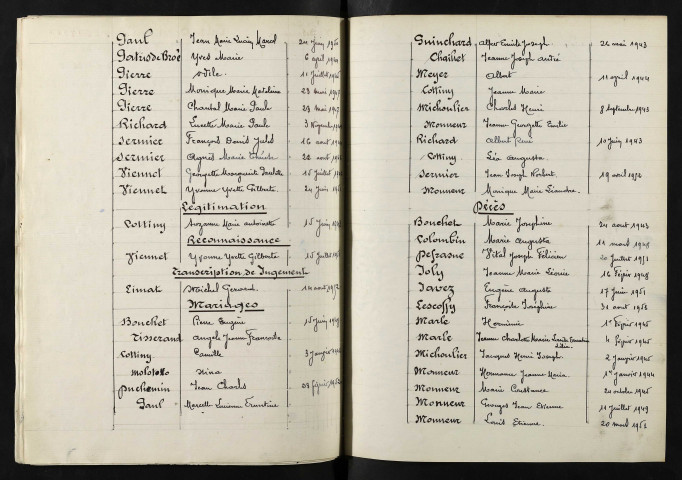 Paul Jean Marie Lucien Marcel
Yves Marie 6 avril
Pierre Odile 11 Juillet
Pierre Monique Marie Madeleine 23 mai 1947
Pierre Chantal Marie Paule 28 mai
Richard Lucette Marie Paule 3
Sermier François Denis Jules 16 août
Sermier Agnès Marie 22 août
Viennet Georgette Marguerite 15 Juillet
Viennet Yvonne Yvette Gilberte 24 Juin
Légitimation
Cottiny Suzanne Marie Antoinette 15 Juin
Reconnaissance
Viennet Yvonne Yvette Gilberte 15 Juillet
Transcription de Jugement
Michel Gérard 14 août 1952
Mariages
Bouchet Pierre Eugène 15 Juin 1949
Tisserand Angèle Jeanne Françoise
Cottiny Camille 3 Janvier
Nina
Puchemin Jean Charles 28 février
Paul Marcelle Lucienne
Guinchard Alfred Emile Joseph 26 mai 1943
Chaillet Jeanne Joseph André
Meyer Albert 11 avril 1944
Cottiny Jeanne Marie
Michoulier Charles Henri 8 Septembre 1945
Monneur Jeanne Georgette Emilie
Richard Albert René 10 Juin 1943
Cottiny Léa Augusta
Sermier Jean Joseph Norbert 19 avril 1952
Monneur Monique Marie Léandre
Décès
Bouchet Marie Joséphine 24 août 1943
Colombin Marie Augusta 11 mars 1948
Defrasne Vital Joseph Félicien 20 Juillet 1951
Joly Jeanne Marie Léonie 16 février 1948
Javez Eugène Auguste 17 Juin 1951
Lescoffy Françoise Joséphine 31 août 1953
Marle Herminie 1er février 1945
Marle Jeanne Charlotte Marie 4 février 1945
Michoulier Jacques Henri Joseph 2 Janvier 1945
Monneur Hermann Jeanne Maria 1er Janvier 1944
Monneur Marie Constance 20 octobre 1945
Monneur Georges Jean Etienne 11 Juillet 1949
Monneur Louis Etienne 20 mars 1952